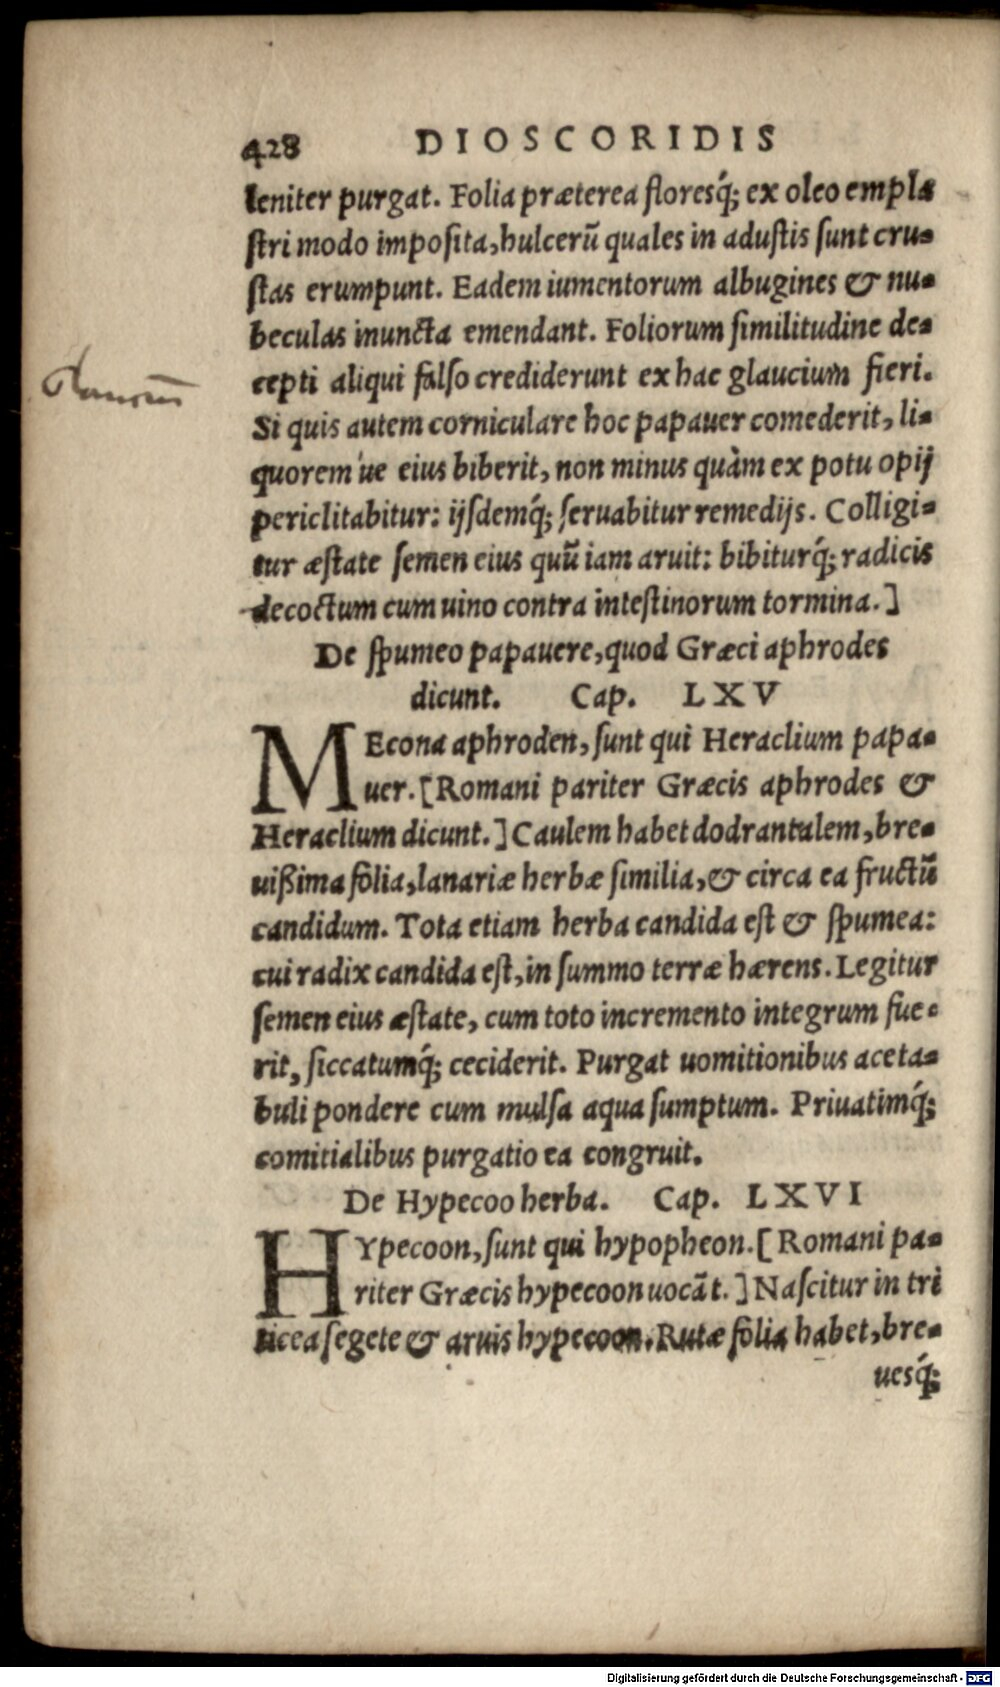 428 DIOSCORIDIS
leniter purgat. Folia præterea floresq́; ex oleo empla
ſtri modo impoſita, hulcerũ quales in aduſtis ſunt cru-
ſtas erumpunt. Eadem iumentorum albugines & nu-
beculas inuncta emendant. Foliorum ſimilitudine de-
cepti aliqui falſo crediderunt ex hac glaucium fieri.
Glaucium
Si quis autem corniculare hoc papauer comederit, li-
quorem ue eius biberit, non minus quàm ex potu opij
periclitabitur: ijſdemq́; ſeruabitur remedijs. Colligi-
tur æſtate ſemen eius quũ iam aruit: bibiturq́; radicis
decoctum cum uino contra inteſtinorum tormina.]
De ſpumeo papauere, quod Græci aphrodes
dicunt. Cap. LXV
MEcona aphroden, ſunt qui Heraclium papa-
uer. [Romani pariter Græcis aphrodes &
Heraclium dicunt.] Caulem habet dodrantalem, bre-
uißima folia, lanariæ herbæ ſimilia, & circa ea fructũ
candidum. Tota etiam herba candida eſt & ſpumea:
cui radix candida eſt, in ſummo terræ hærens. Legitur
ſemen eius æſtate, cum toto incremento integrum fue-
rit, ſiccatumq́; ceciderit. Purgat uomitionibus aceta-
buli pondere cum mulſa aqua ſumptum. Priuatimq́;
comitialibus purgatio ea congruit.
De Hypecoo herba. Cap. LXVI
HYpecoon, ſunt qui hypopheon. [Romani pa-
riter Græcis hypecoon uocãt.] Naſcitur in tri
ticea ſegete & aruis hypecoon. Rutæ folia habet, bre-
uesq́;
Digitalisierung gefördert durch die Deutsche Forschungsgemeinschaft - DFG